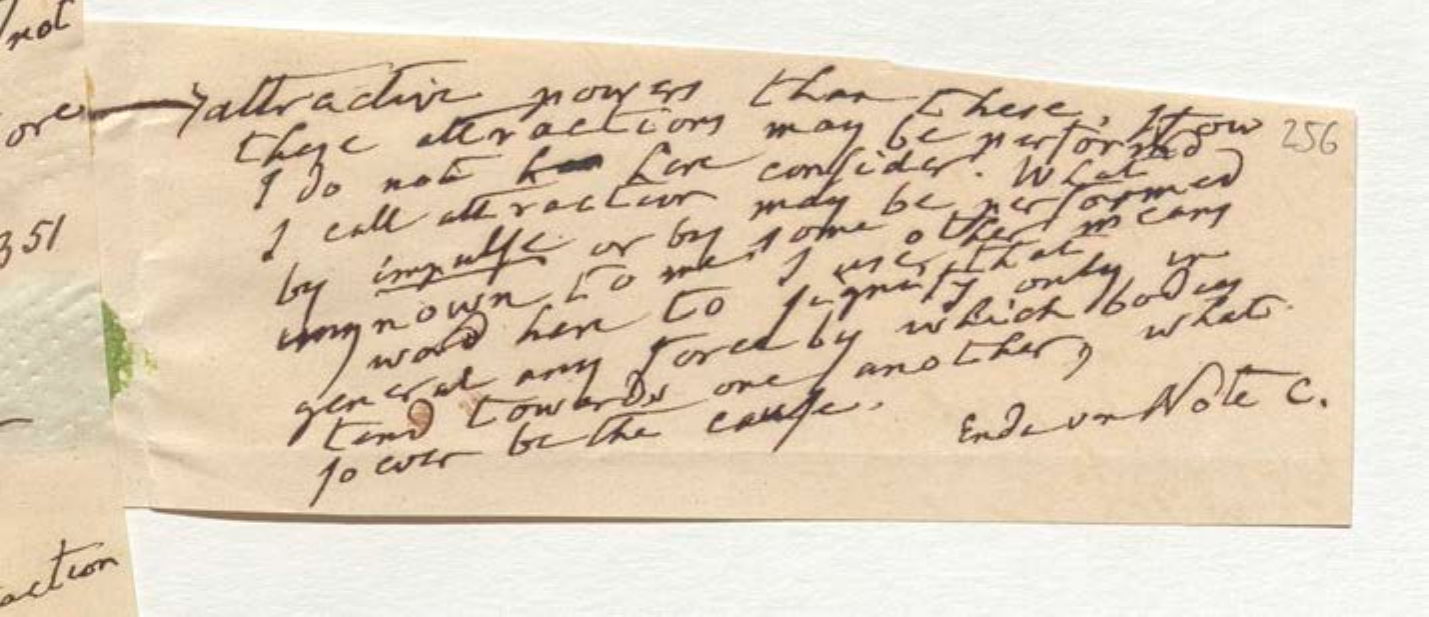 not
ore
attractive powers than these. How
256
these attractions may be performed
I do not here consider. What
I call attraction may be performed
by impulse or by some other means
unknown to me. I use that
word here to signify only in
general any force by which bodies
tend towards one another, what
soever be the cause.
End von Note C.
351
action